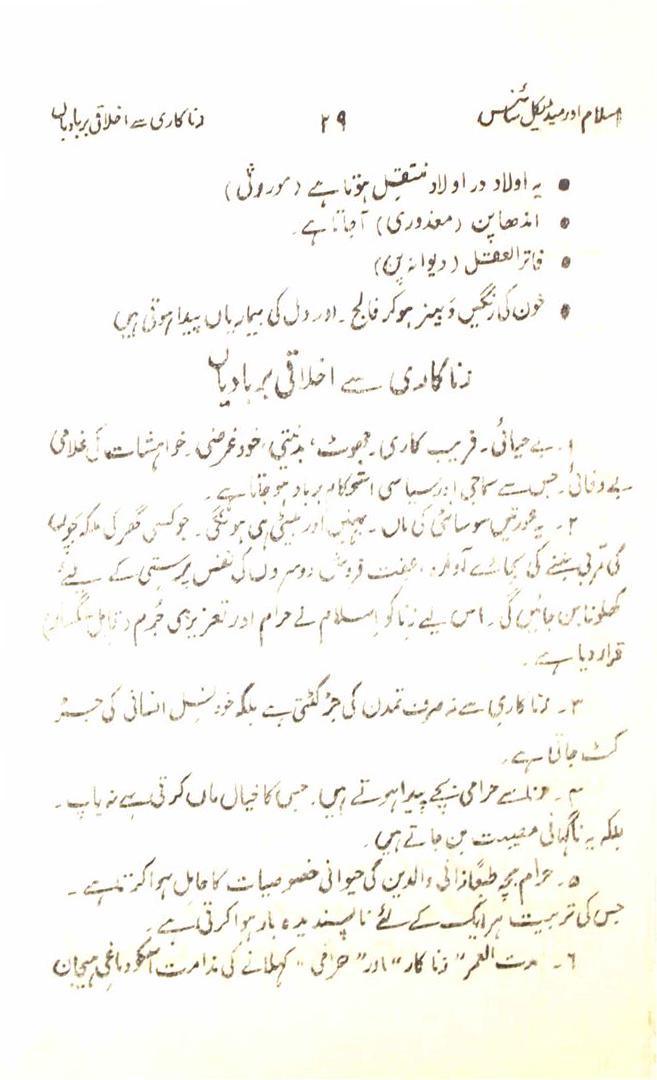 اسلام اور میڈیکل سائنس ۲۹ زنا کاری سے اخلاقی بربادیاں
● یہ اولاد در اولاد منتقل ہوتا ہے (موروثی)
● اندھا پن (معذوری) آ جاتا ہے۔
● فاتر العقل (دیوانہ پن)
● خون کی رگیں دبیز ہو کر فالج۔ اور دل کی بیماریاں پیدا ہوتی ہیں
زنا کاری سے اخلاقی بربادیاں
۱۔ بے حیائی۔ فریب کاری۔ جھوٹ، بدنیتی، خود غرضی۔ خواہشات کی غلامی
بے وفائی۔ جس سے سماجی اور سیاسی استحکام برباد ہو جاتا ہے۔
۲۔ یہ عورتیں سوسائٹی کی ماں۔ بہنیں اور بیٹی ہی ہونگی۔ جو کسی گھر کی ملکہ
کی مربی بننے کی بجائے آوارہ، عفت فروش دوسروں کی نفس پرستی کے لیئے
کھلونا بن جائیں گی۔ اس لیے زنا کو اسلام نے حرام اور تعزیری جرم (قابل
قرار دیا ہے۔
۳۔ زنا کاری سے نہ صرف تمدن کی جڑ کٹتی ہے بلکہ خود نسل انسانی کی جڑ
کٹ جاتی ہے۔
۴۔ زنا سے حرامی بچے پیدا ہوتے ہیں۔ جس کا خیال ماں کرتی ہے نہ باپ۔
بلکہ یہ ناگہانی مصیبت بن جاتے ہیں۔
۵۔ حرام بچہ طبعاً زانی والدین کی حیوانی خصوصیات کا حامل ہوا کرتا ہے۔
جس کی تربیت ہر ایک کے لئے ناپسندیدہ بار ہوا کرتی ہے۔
۶۔ مدت العمر "زنا کار" اور "حرامی" کہلانے کی ندامت اسکو دماغی ہیجان